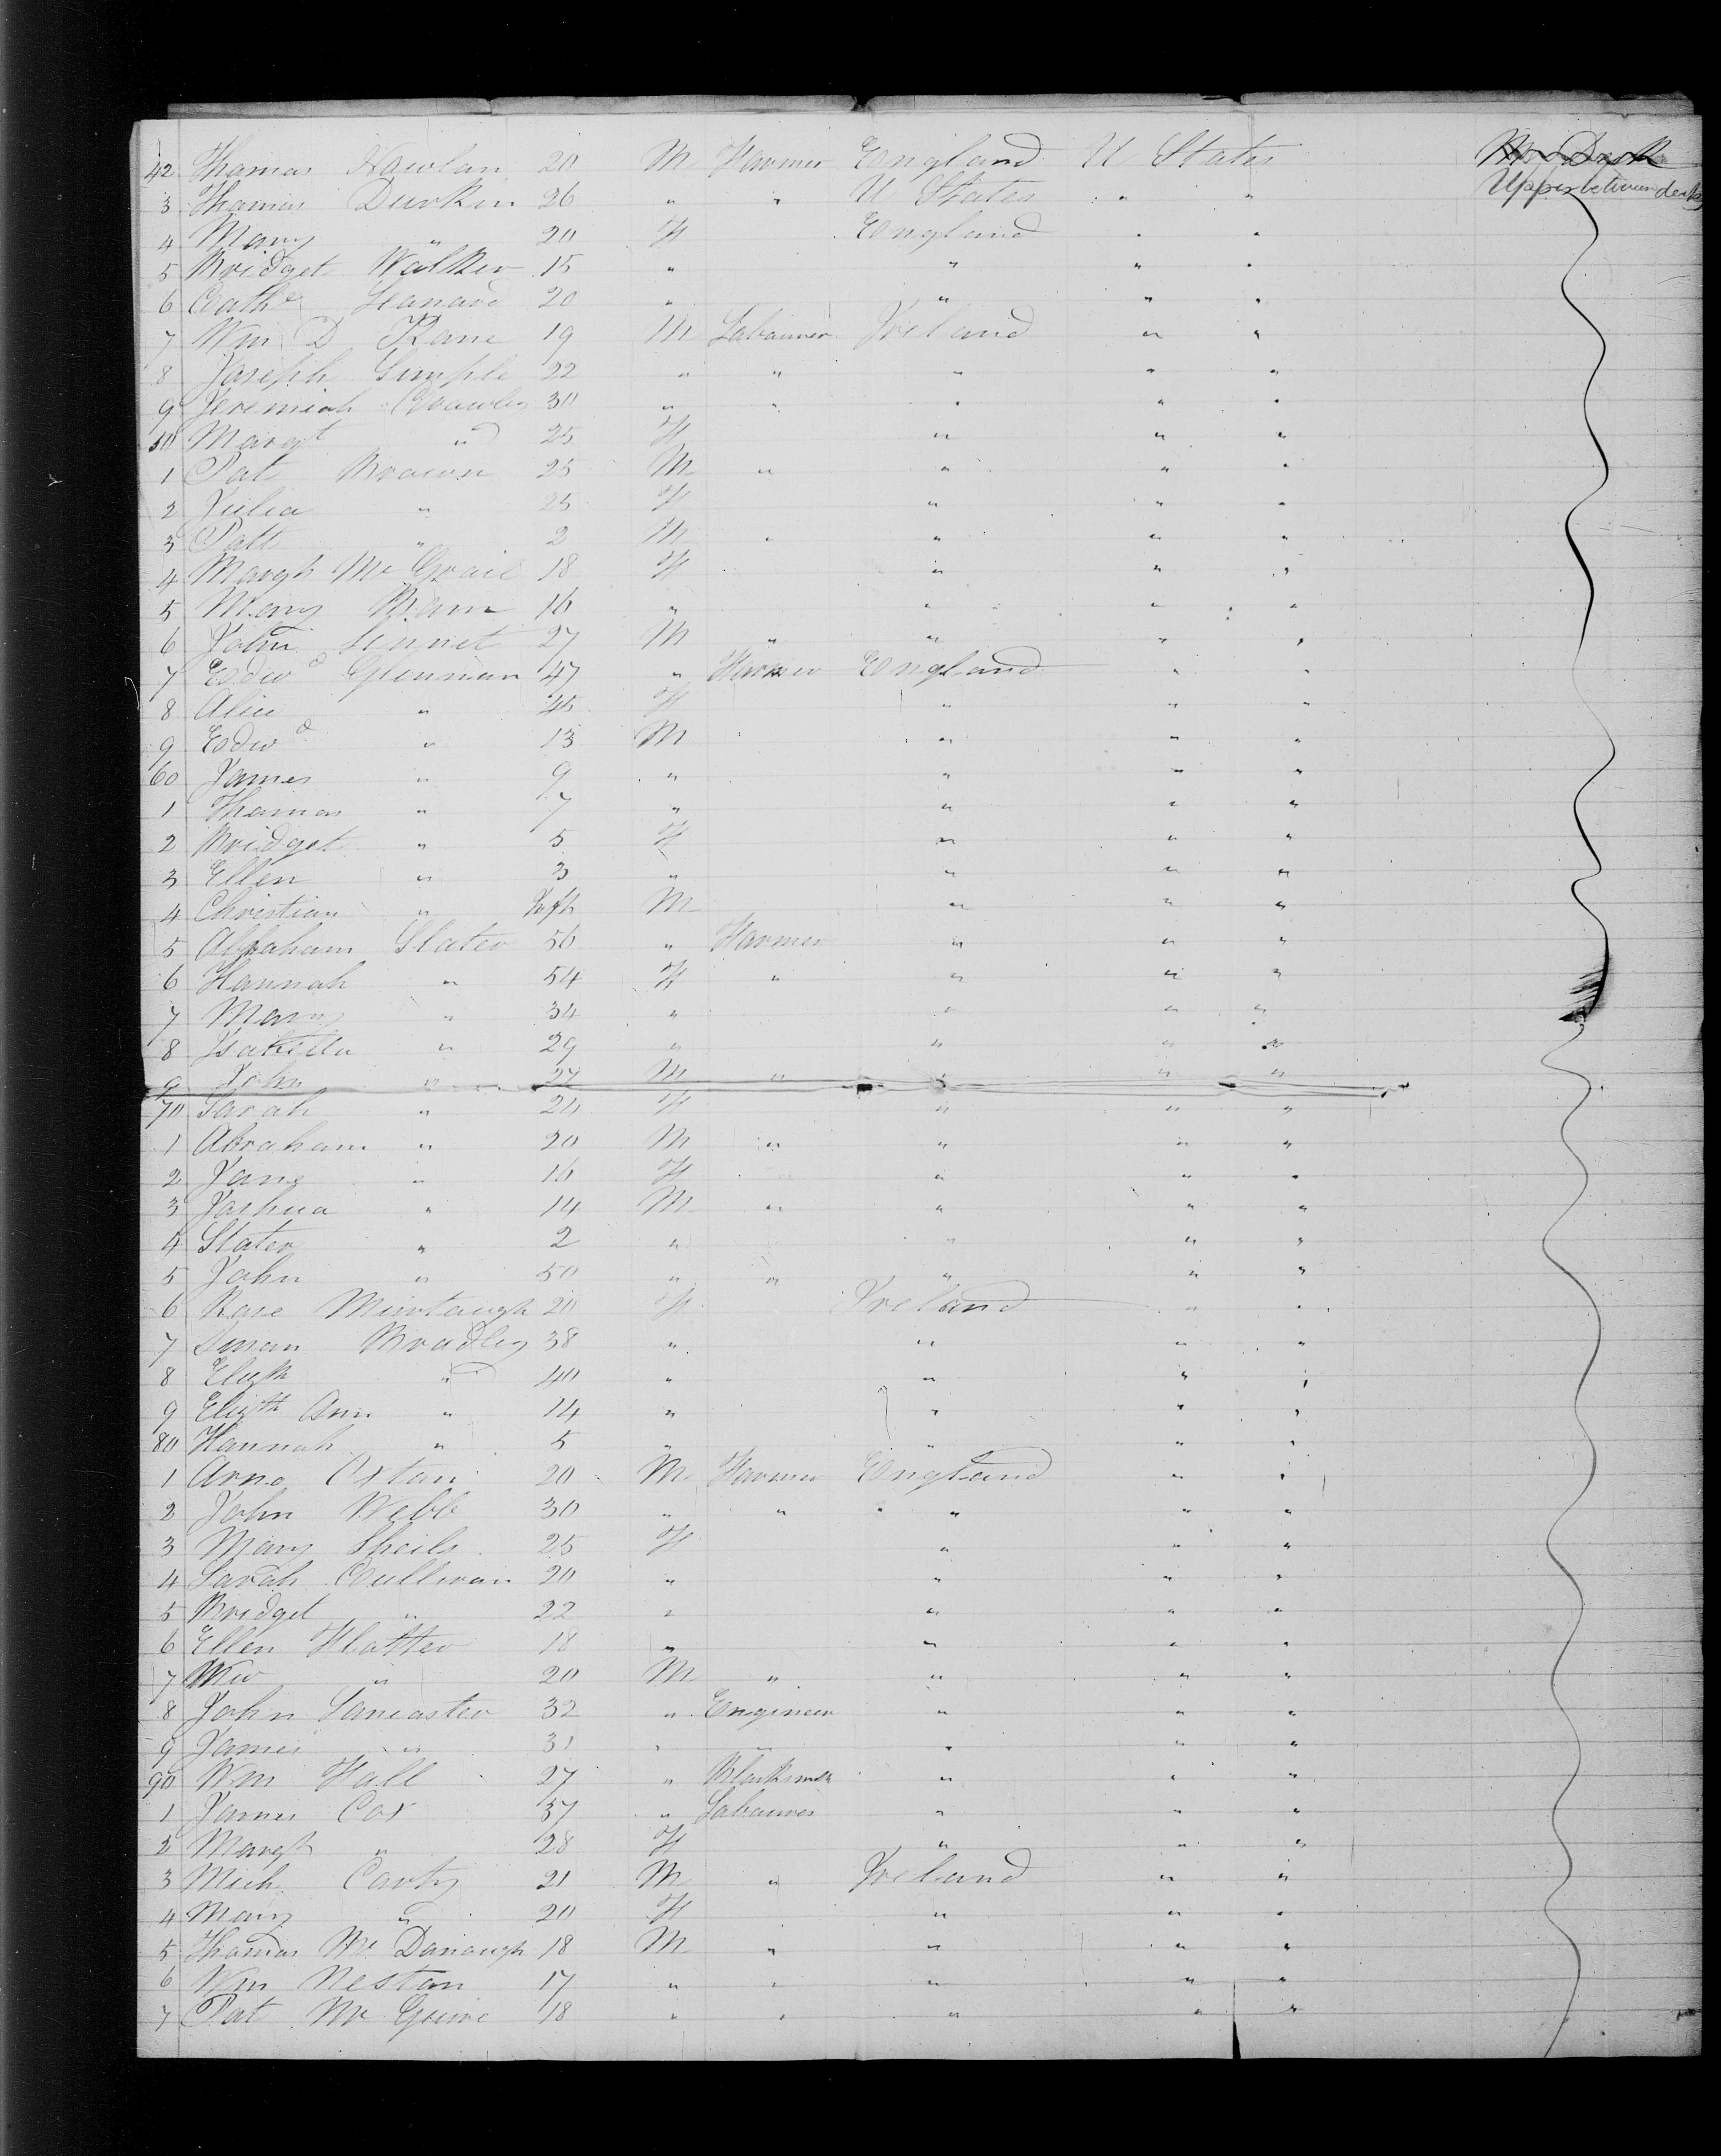 42 Thomas Nowlan 20 M Farmer England U States
Upper between decks
3 Thomas Durkin 26 " " U States " "
4 Mary " 20 F England " "
5 Bridget Walker 15 " " " "
6 Cath<sup>e</sup> Leonard 20 " " " "
7 Wm D Kane 19 M Labourer Ireland " "
8 Joseph Gimple 22 " " " " "
9 Jeremiah Crowley 30 " " " " "
50 Margt " 25 F " " "
1 Pat Brown 25 M " " " "
2 Julia " 25 F " " "
3 Patt " 2 M " " " "
4 Margt Mc Grail 18 F " " "
5 Mary 16 " " " "
6 John 27 M " " " "
7 Edwd Glennan 47 " Farmer England " "
8 Alice " 45 F " " "
9 Edwd " 13 M " " "
60 James " 9 " " " "
1 Thomas " 7 " " " "
2 Bridget " 5 F " " "
3 Ellen " 3 " " " "
4 Christian " Inft M " " "
5 Abraham Slater 56 " Farmer " " "
6 Hannah " 54 F " " " "
7 Mary " 34 " " " "
8 Isabella " 29 " " " "
9 John " 27 M " " " "
70 Sarah " 24 F " " "
1 Abraham " 20 M " " " "
2 Jane " 16 F " " "
3 Joshua " 14 M " " " "
4 Slater " 2 " " " "
5 John " 50 " " " " "
6 Rose Murtaugh 20 F Ireland " "
7 Susan Bradley 38 " " " "
8 Elizth " 40 " " " "
9 Elizth Ann " 14 " " " "
80 Hannah " 5 " " " "
1 20 M Farmer England " "
2 John Webb 30 " " " " "
3 Mary Sheils 25 F " " "
4 Sarah Cullivan 20 " " " "
5 Bridget " 22 " " " "
6 Ellen 18 " " " "
7 " 20 M " " " "
8 John Lancaster 32 " Engineer " " "
9 James " 31 " " " " "
90 Wm Hall 27 " Blacksmith " " "
1 James Cox 37 " Labourer " " "
2 Margt " 28 F " " "
3 Mich Carty 21 M " Ireland " "
4 Mary " 20 F " " "
5 Thomas Mc Donaugh 18 M " " " "
6 Wm Neston 17 " " " " "
7 Pat Mc Guire 18 " " " " "